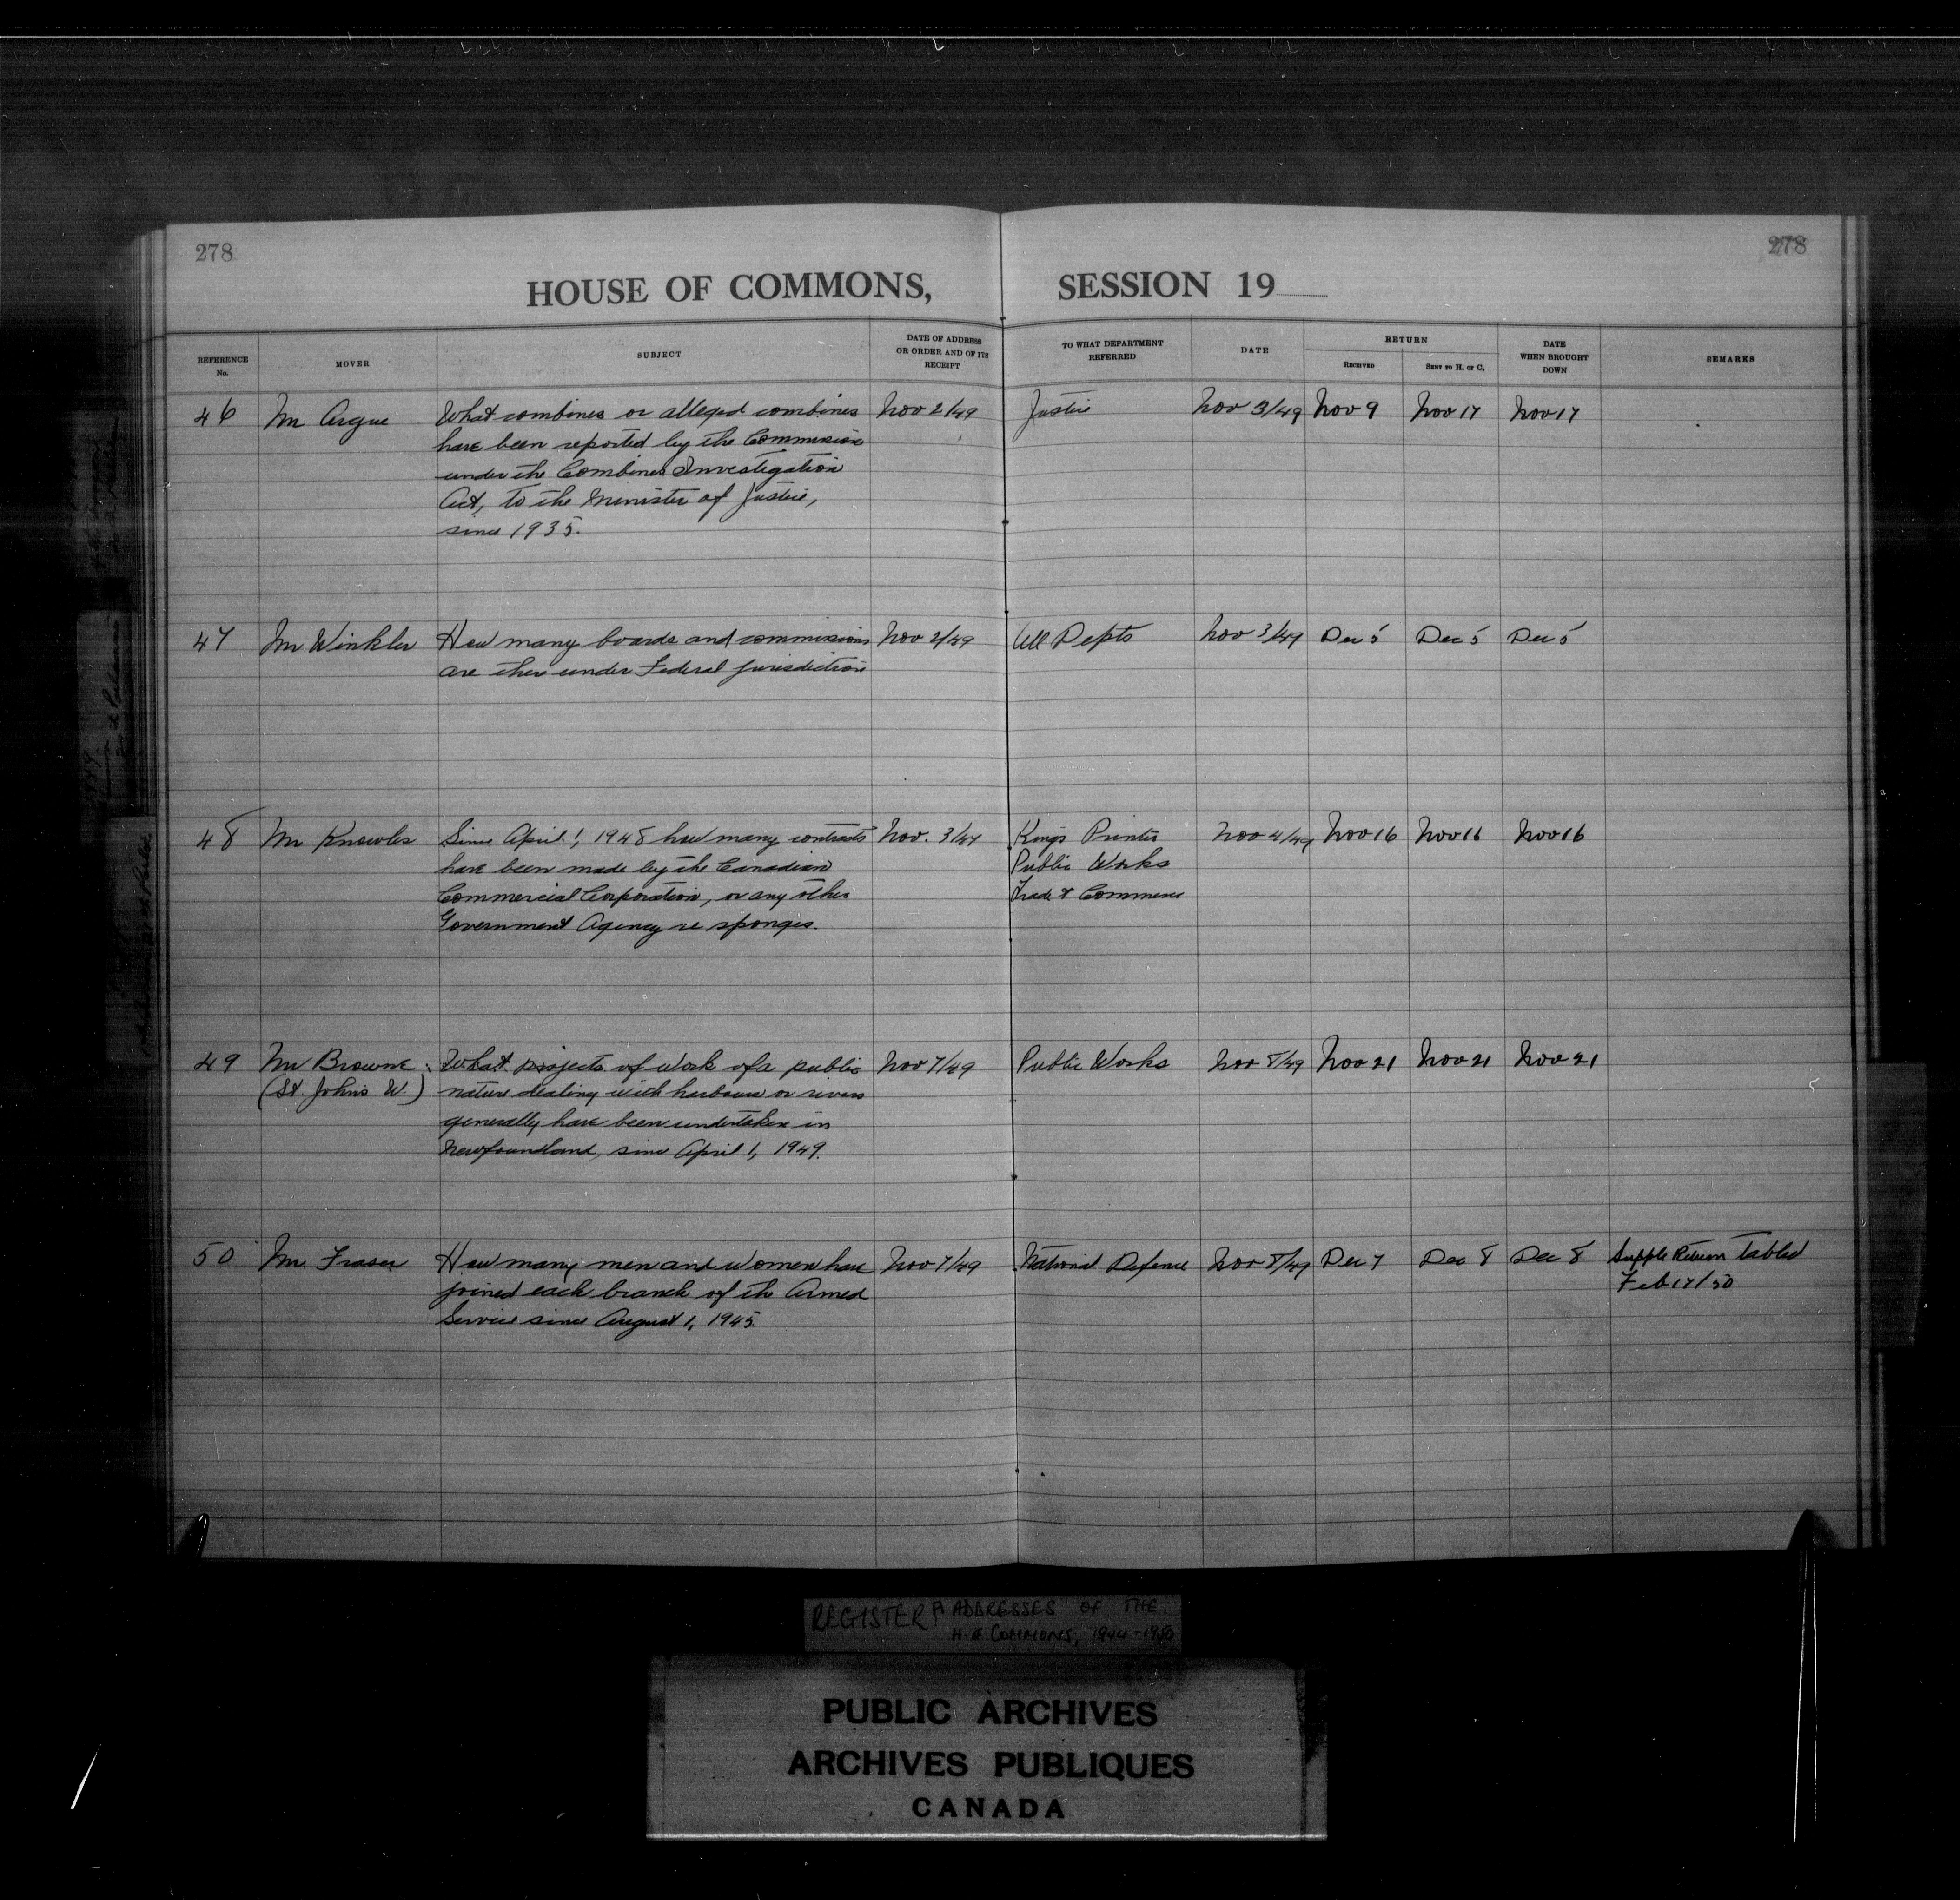 278
278
HOUSE OF COMMONS, SESSION 19
REFERENCE No.
MOVER
SUBJECT
DATE OF ADDRESS OR ORDER AND OF ITS RECEIPT
TO WHAT DEPARTMENT REFERRED
DATE
RETURN
RECEIVED
SENT TO H. OF C.
DATE WHEN BROUGHT DOWN
REMARKS
46 Mr Argue What combines or alleged combines Nov 2/49 Justice Nov 3/49 Nov 9 Nov 17 Nov 17
have been reported by the Commission
under the Combines Investigation
Act, to the Minister of Justice,
since 1935.
47 Mr Winkler How many boards and commissions Nov 2/49 All Depts Nov 3/49 Dec 5 Dec 5 Dec 5
are there under Federal jurisdiction
48 Mr Knowles Since April 1, 1948 how many contracts Nov. 3/49 Kings Printer Nov 4/49 Nov 16 Nov 16 Nov 16
have been made by the Canadian Public Works
Commercial Corporation, or any other Trade & Commerce
Government Agency re sponges.
49 Mr Browne What projects of work of a public Nov 7/49 Public Works Nov 8/49 Nov 21 Nov 21 Nov 21
(St. John's W.) nature dealing with harbours or rivers
generally have been undertaken in
Newfoundland, since April 1, 1949.
50 Mr. Fraser How many men and women have Nov 7/49 National Defence Nov 8/49 Dec 7 Dec 8 Dec 8 Supple Return tabled
joined each branch of the Armed Feb 17/50
Service since August 1, 1945
REGISTER OF ADDRESSES OF THE
H. of COMMONS, 1944-1950
PUBLIC ARCHIVES
ARCHIVES PUBLIQUES
CANADA